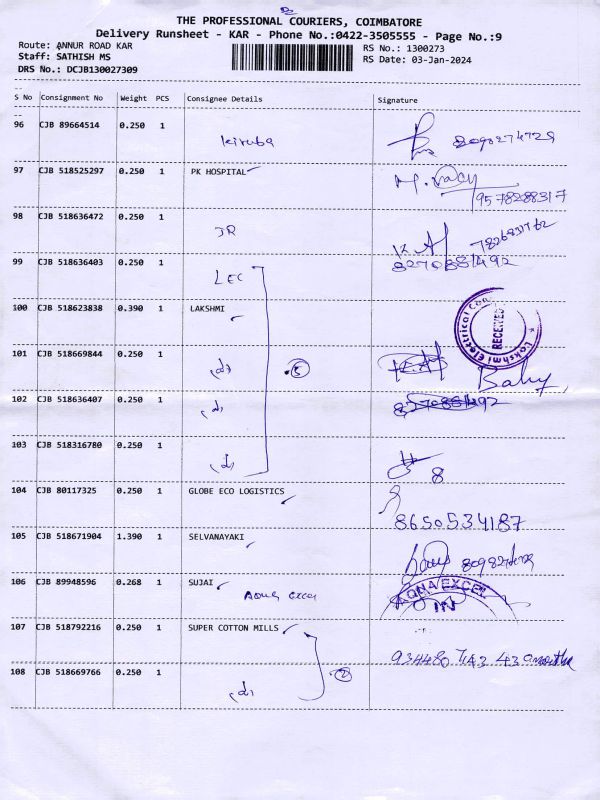 THE PROFESSIONAL COURIERS, COIMBATORE
Delivery Runsheet - KAR - Phone No.:0422-3505555 - Page No.:9
Route: ANNUR ROAD KAR
Staff: SATHISH MS
DRS No.: DCJB130027309
RS No.: 1300273
RS Date: 03-Jan-2024
S No Consignment No Weight PCS Consignee Details Signature
96 CJB 89664514 0.250 1 Kiruba
97 CJB 518525297 0.250 1 PK HOSPITAL
9578288317
98 CJB 518636472 0.250 1 JR
99 CJB 518636403 0.250 1 8270881492
LEC
100 CJB 518623838 0.390 1 LAKSHMI
Lakshmi Electrical RECEIVED
101 CJB 518669844 0.250 1
5
102 CJB 518636407 0.250 1
103 CJB 518316780 0.250 1
8
104 CJB 80117325 0.250 1 GLOBE ECO LOGISTICS
8650534187
105 CJB 518671904 1.390 1 SELVANAYAKI
106 CJB 89948596 0.268 1 SUJAI
Aqua Excel
AQUA EXCEL
107 CJB 518792216 0.250 1 SUPER COTTON MILLS
108 CJB 518669766 0.250 1
2